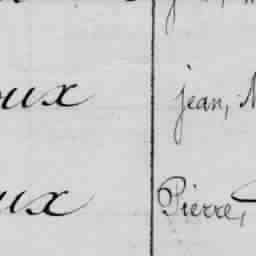 oux jean, M
ux Pierre,